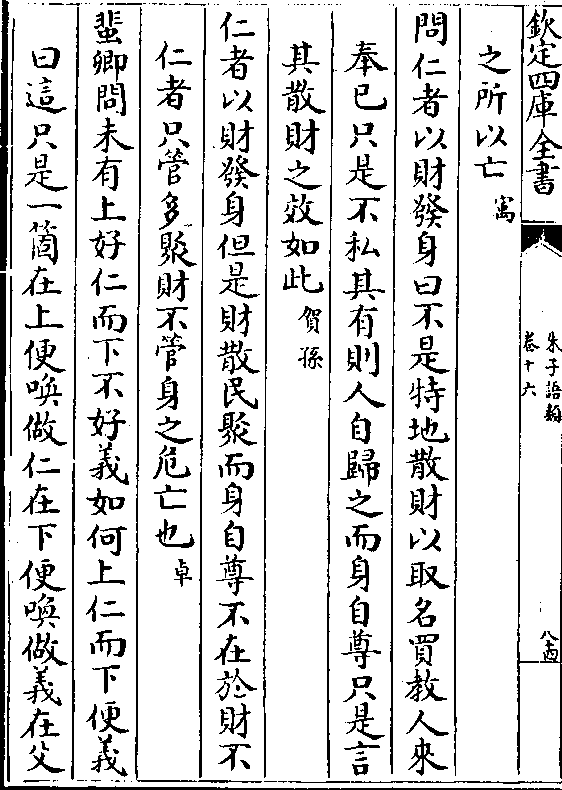 欽定四庫全書
朱子語類
卷十六
八十四
之所以亡㝢
問仁者以財發身曰不是特地散財以取名買教人來
奉已只是不私其有則人自歸之而身自尊只是言
其散財之效如此賀孫
仁者以財發身但是財散民聚而身自尊不在於財不
仁者只管多聚財不管身之危亡也卓
蜚卿問未有上好仁而下不好義如何上仁而下便義
曰這只是一箇在上便喚做仁在下便喚做義在父